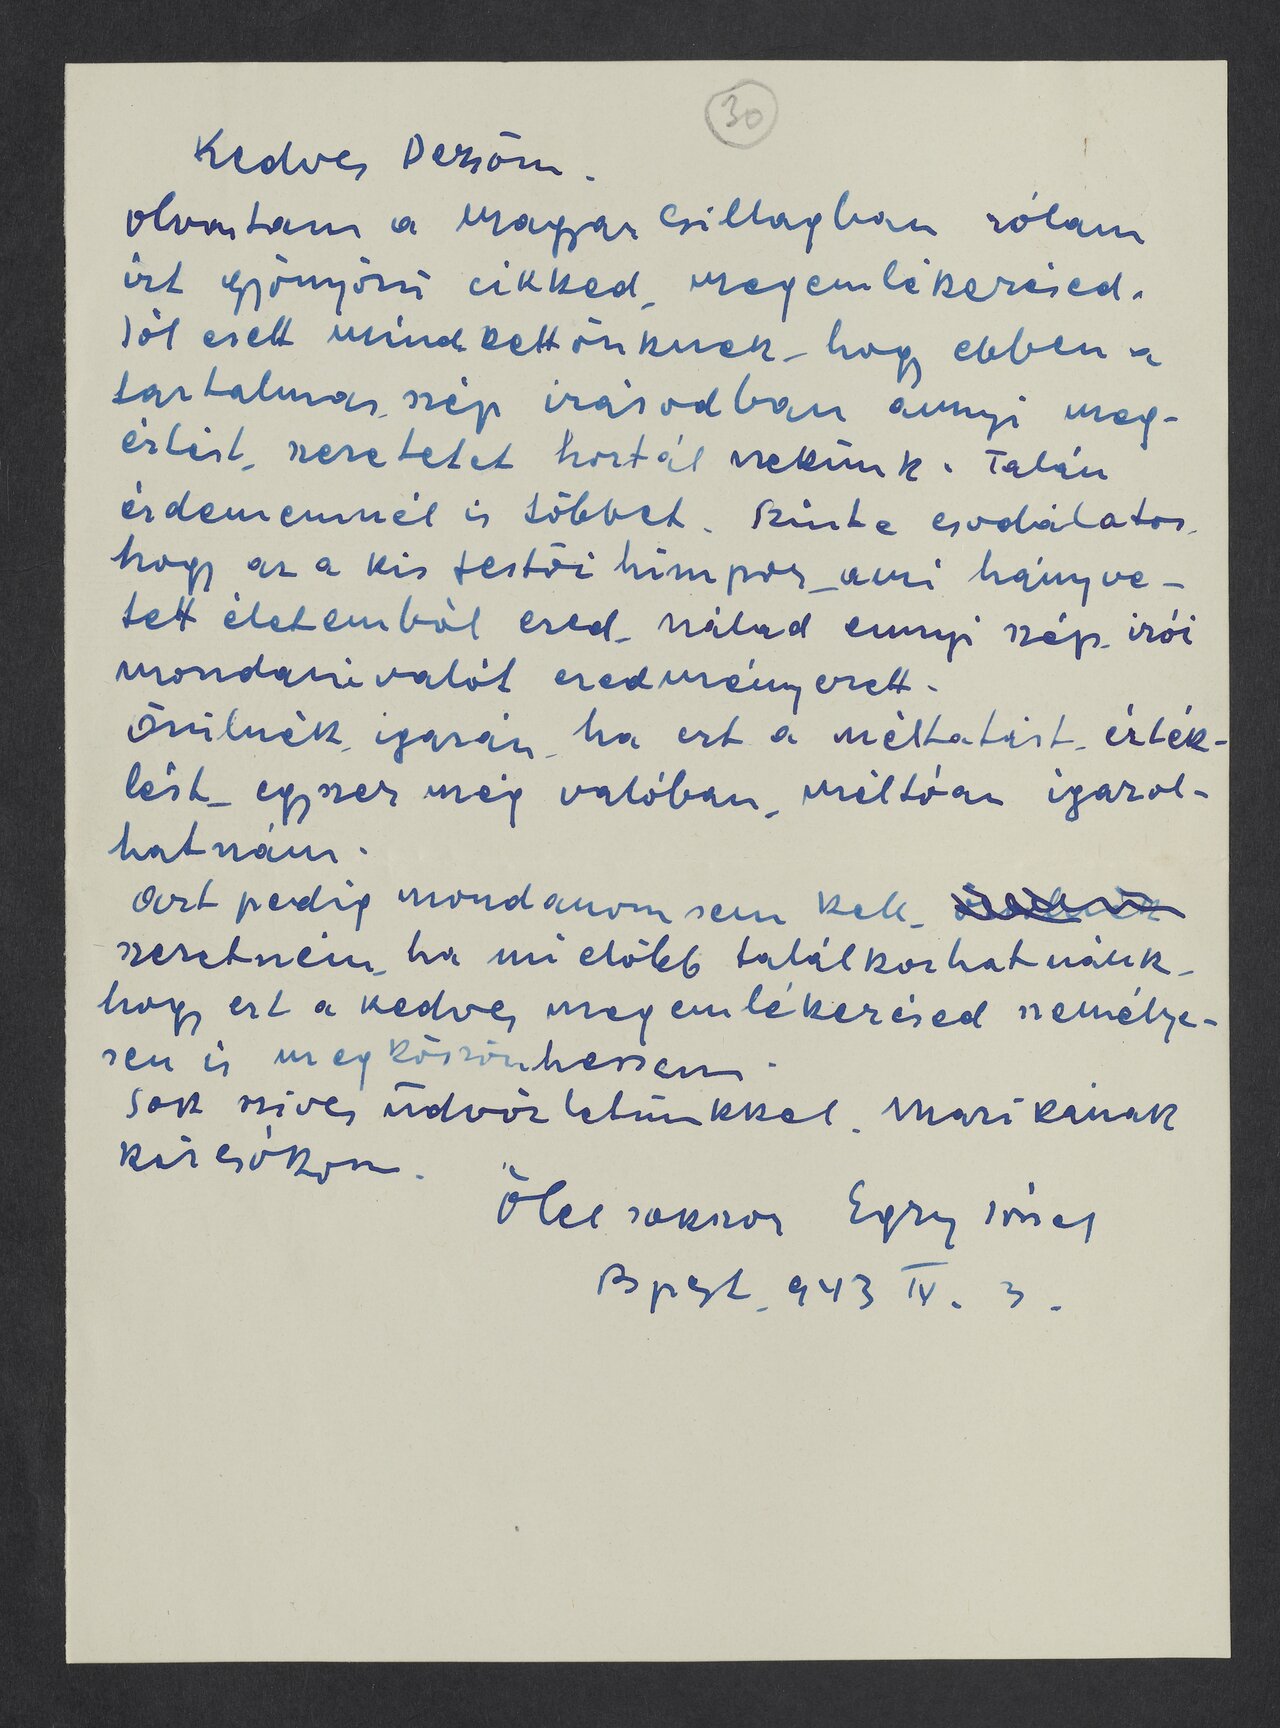 30
Kedves Dezsőm.
olvastam a Magyar Csillagban rólam
írt gyönyörű cikked, megemlékezésed.
Jól esett mindkettőnknek, hogy ebben a
tartalmas, szép írásodban annyi meg-
értést, szeretetet hoztál nekünk. Talán
érdemennél is többet. Szinte csodálatos,
hogy az a kis festői hímpor, ami hányve-
tett életemből ered, nálad ennyi szép, írói
mondanivalót eredményezett.
Örülnék, igazán, ha ezt a méltatást, érték-
lést, egyszer még valóban, méltóan igazol-
hatnám.
Azt pedig mondanom sem kell,
szeretném, ha mielőbb találkozhatnánk,
hogy ezt a kedves megemlékezésed személye-
sen is megköszönhessem.
Sok szíves üdvözletünkkel. Marikának
kézcsókom.
Ölel sokszor Egry József
Bpest, 943 IV. 3.